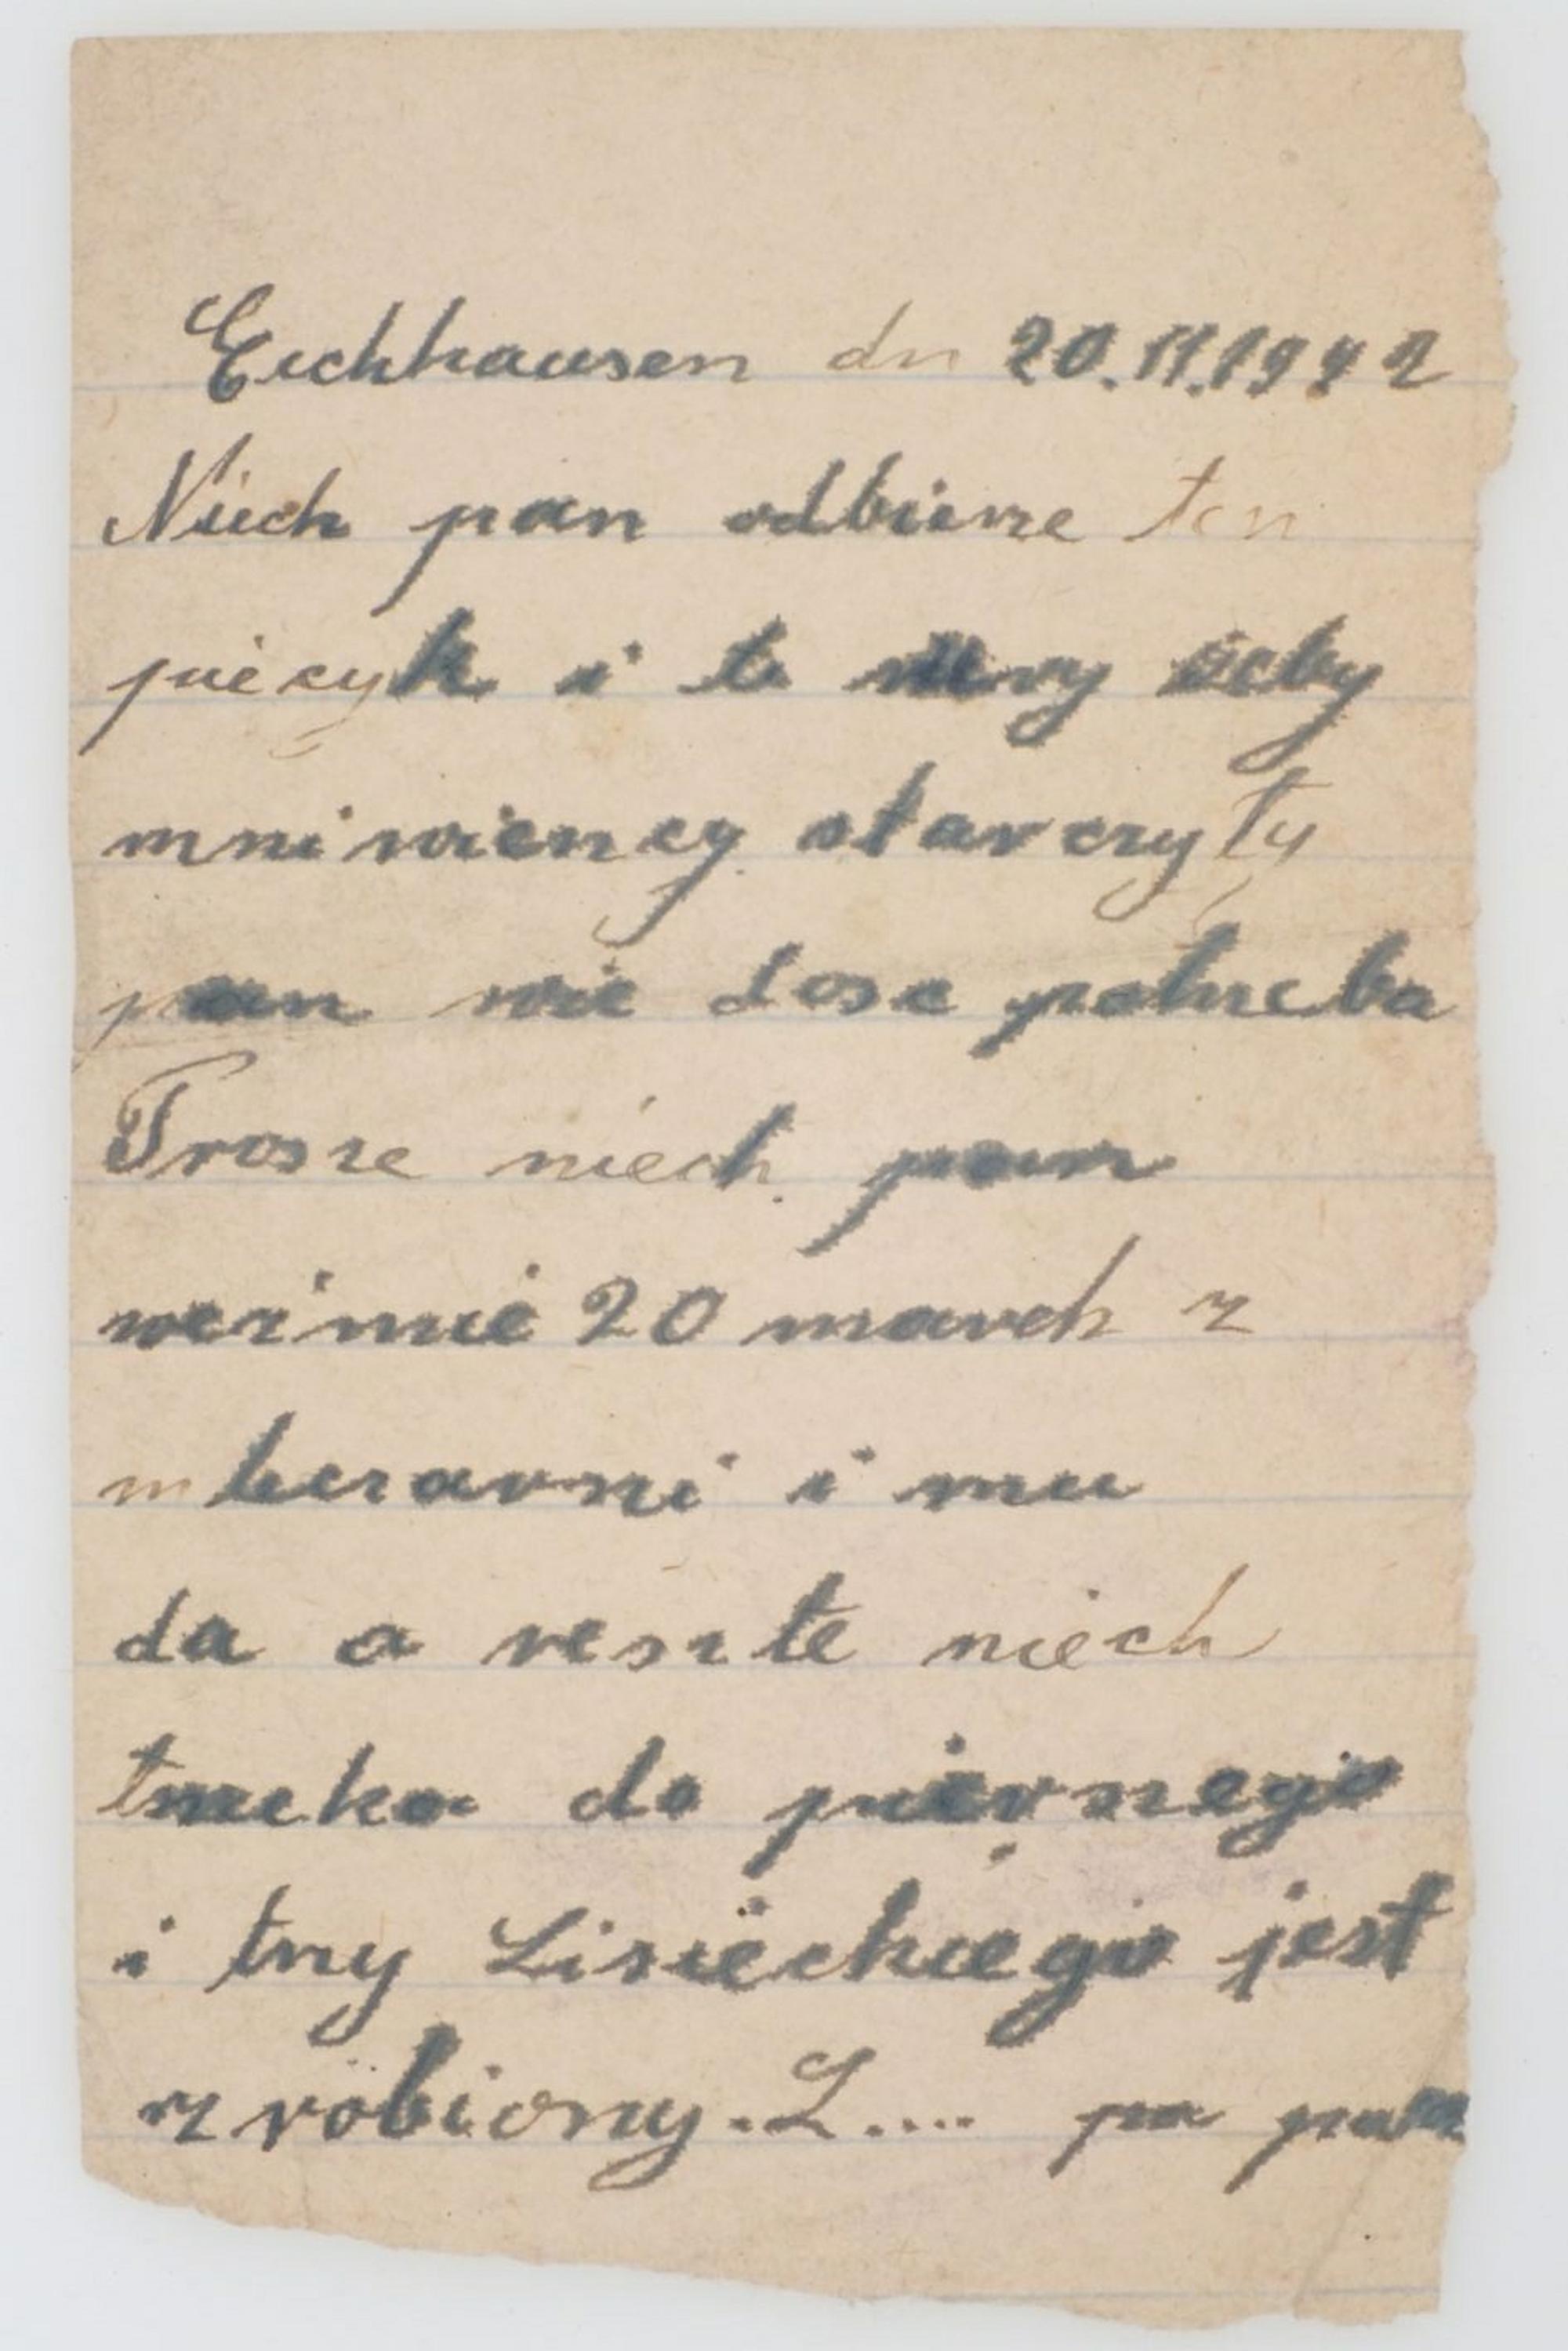 Eichhausen dn 20.11.1942
Niech pan odbierze ten
piecyk i te rury żeby
mniwiency starczyły
pan wie dosc potrzeba
Prosze niech pan
wezimie 20 march z
mleczarni i mu
da a reszte niech
trzeka do pierszego
i trzy Lisieckiego jest
zrobiony. L.... pa pan